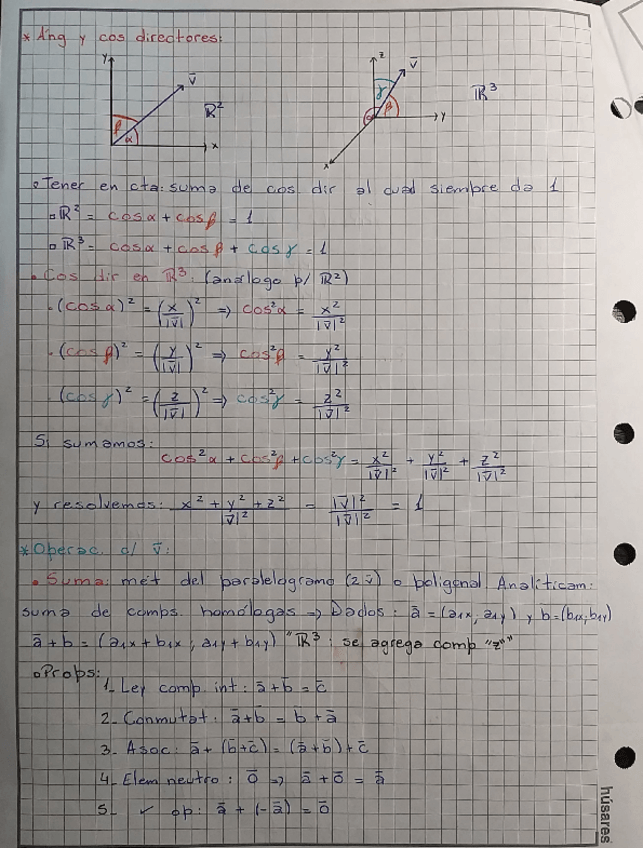 * Áng y cos directores:
y v̄ ℝ² β α x
z v̄ ℝ³ γ α β y x
∘ Tener en cta: suma de cos. dir al cuad siempre da 1
▫ ℝ² = cosα + cosβ = 1
▫ ℝ³ = cosα + cosβ + cosγ = 1
• Cos dir en ℝ³: (análogo p/ ℝ²)
• (cosα)² = (x/|v̄|)² ⇒ cos²α = x²/|v̄|²
• (cosβ)² = (y/|v̄|)² ⇒ cos²β = y²/|v̄|²
• (cosγ)² = (z/|v̄|)² ⇒ cos²γ = z²/|v̄|²
Si sumamos:
cos²α + cos²β + cos²γ = x²/|v̄|² + y²/|v̄|² + z²/|v̄|²
y resolvemos: x² + y² + z²/|v̄|² = |v̄|²/|v̄|² = 1
* Operac. c/ v̄:
• Suma: mét del paralelogramo (2 v̄) o poligonal. Analíticam:
suma de comps. homólogas ⇒ Dados: ā = (a1x; a1y) y b = (b1x; b1y)
ā + b̄ = (a1x + b1x ; a1y + b1y) "ℝ³: se agrega comp "z""
∘ Props:
1_ Ley comp. int: ā + b̄ = c̄
2_ Conmutat: ā + b̄ = b̄ + ā
3_ Asoc: ā + (b̄ + c̄) = (ā + b̄) + c̄
4_ Elem neutro: ō ⇒ ā + ō = ā
5_ ✓ op: ā + (-ā) = ō
húsares